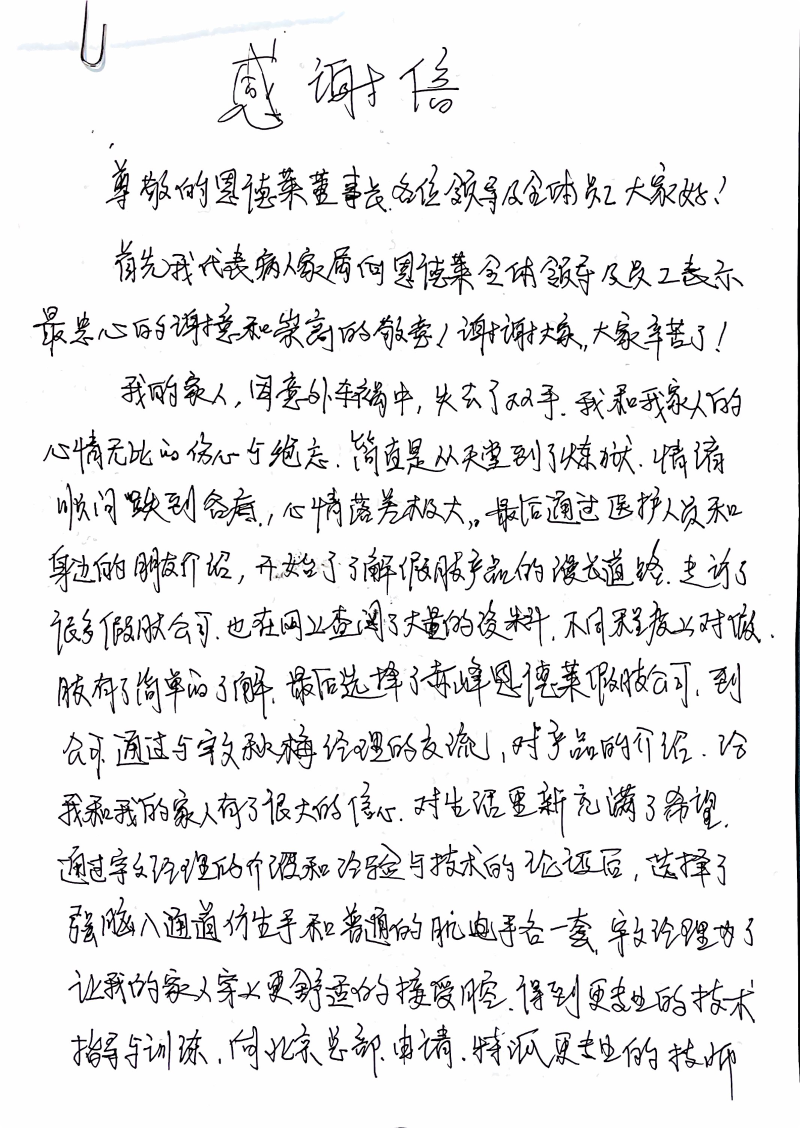 感谢信
尊敬的恩德莱董事长.各位领导及全体员工大家好！
首先我代表病人家属向恩德莱全体领导及员工表示
最忠心的谢意和崇高的敬意！谢谢大家,,大家辛苦了！
我的家人，因意外车祸中，失去了双手.我和我家人的
心情无比的伤心与绝忘.简直是从天堂到了炼狱.情绪
顺间跌到谷底.，心情落差极大,,最后通过医护人员和
身边的朋友介绍，开始了了解假肢产品的漫长道路.走访了
很多假肢公司.也在网上查阅了大量的资料.不同程度上对假.
肢有了简单的了解.最后选择了赤峰恩德莱假肢公司.到
公司.通过与宇文秋梅经理的交流，对产品的介绍.给
我和我的家人有了很大的信心.对生活重新充满了希望.
通过宇文经理的介绍和经验与技术的论证后，选择了
强脑入通道仿生手和普通的肌电手各一套.宇文经理为了
让我的家人穿上更舒适的接受腔.得到更专业的技术
指导与训练.向北京总部.申请.特派更专业的技师